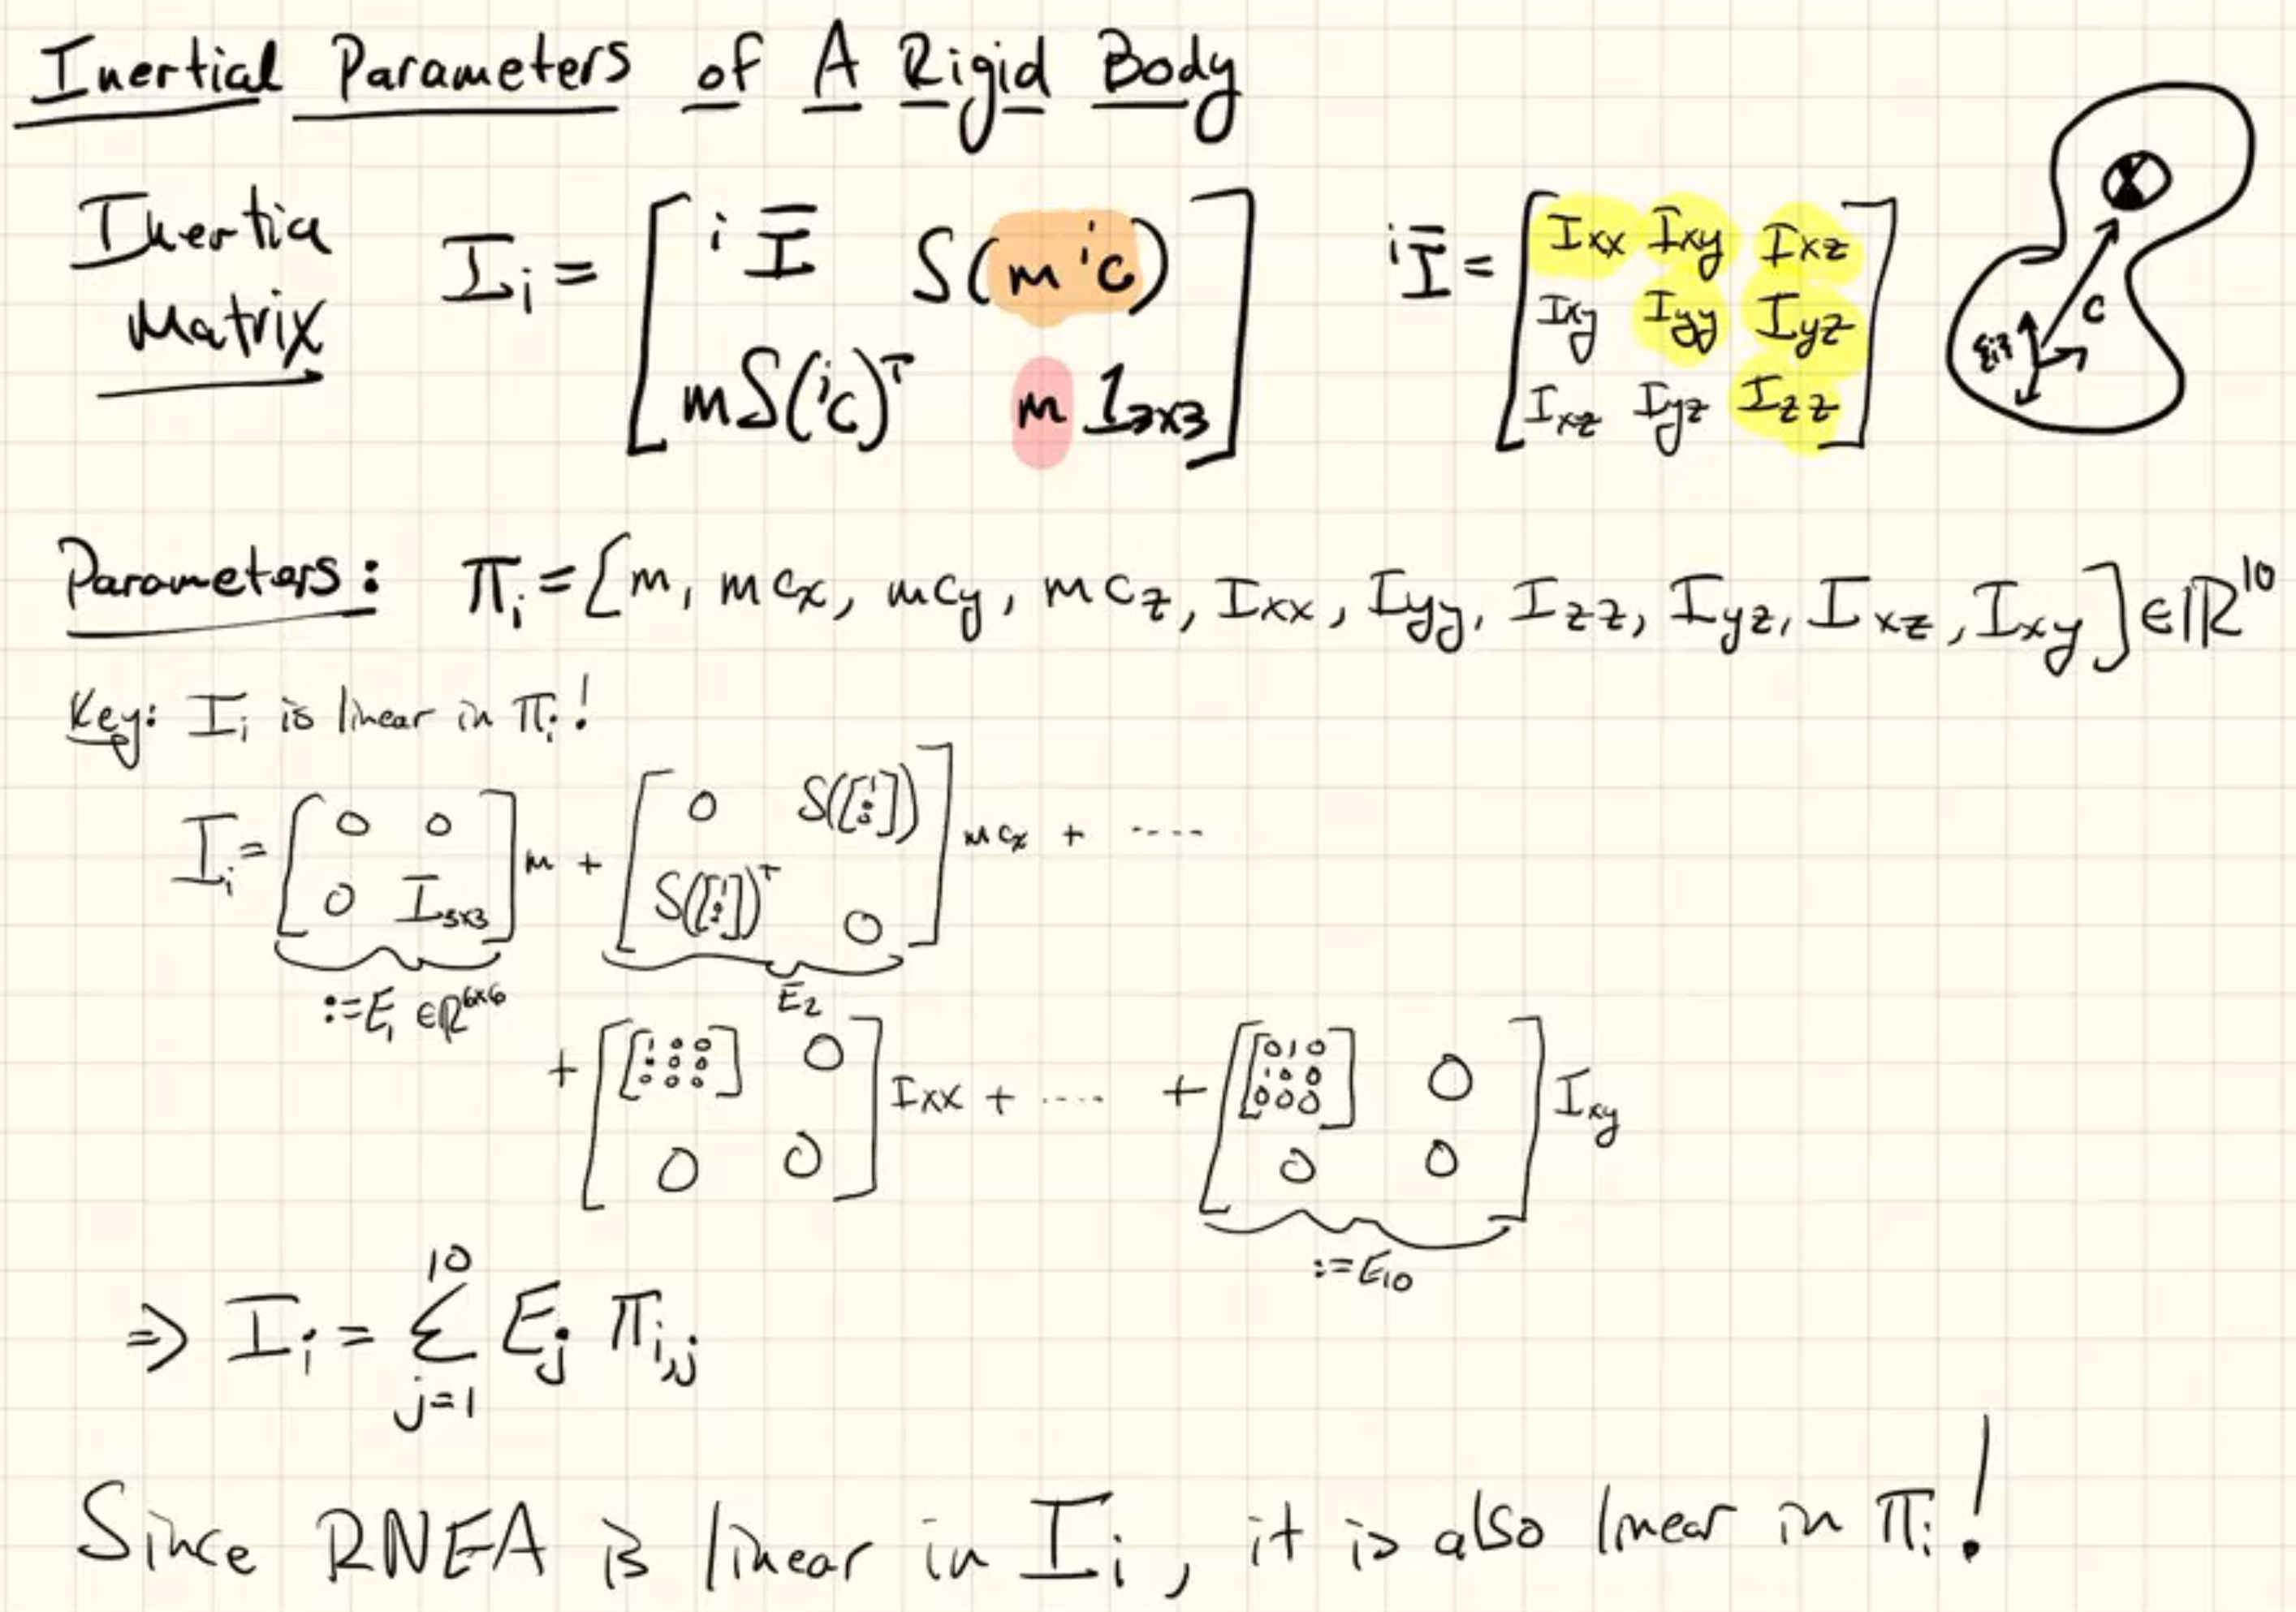 Inertial Parameters of A Rigid Body
Inertia Matrix I_i = [ ^i Ī  S(m ^i c) ; m S(^i c)^T  m 1_{3x3} ]
^i Ī = [ Ixx Ixy Ixz ; Ixy Iyy Iyz ; Ixz Iyz Izz ]
{i} c
Parameters: π_i = [m, m c_x, m c_y, m c_z, I_xx, I_yy, I_zz, I_yz, I_xz, I_xy] ∈ ℝ^10
Key: I_i is linear in π_i!
I_i = [ 0 0 ; 0 I_{3x3} ] m + [ 0 S([1 0 0]) ; S([1 0 0])^T 0 ] m c_x + ....
:= E_1 ∈ ℝ^{6x6}  E_2
+ [ [1 0 0 ; 0 0 0 ; 0 0 0] 0 ; 0 0 ] I_xx + .... + [ [0 1 0 ; 1 0 0 ; 0 0 0] 0 ; 0 0 ] I_xy
:= E_10
⇒ I_i = Σ_{j=1}^{10} E_j π_{i,j}
Since RNEA is linear in I_i, it is also linear in π_i!